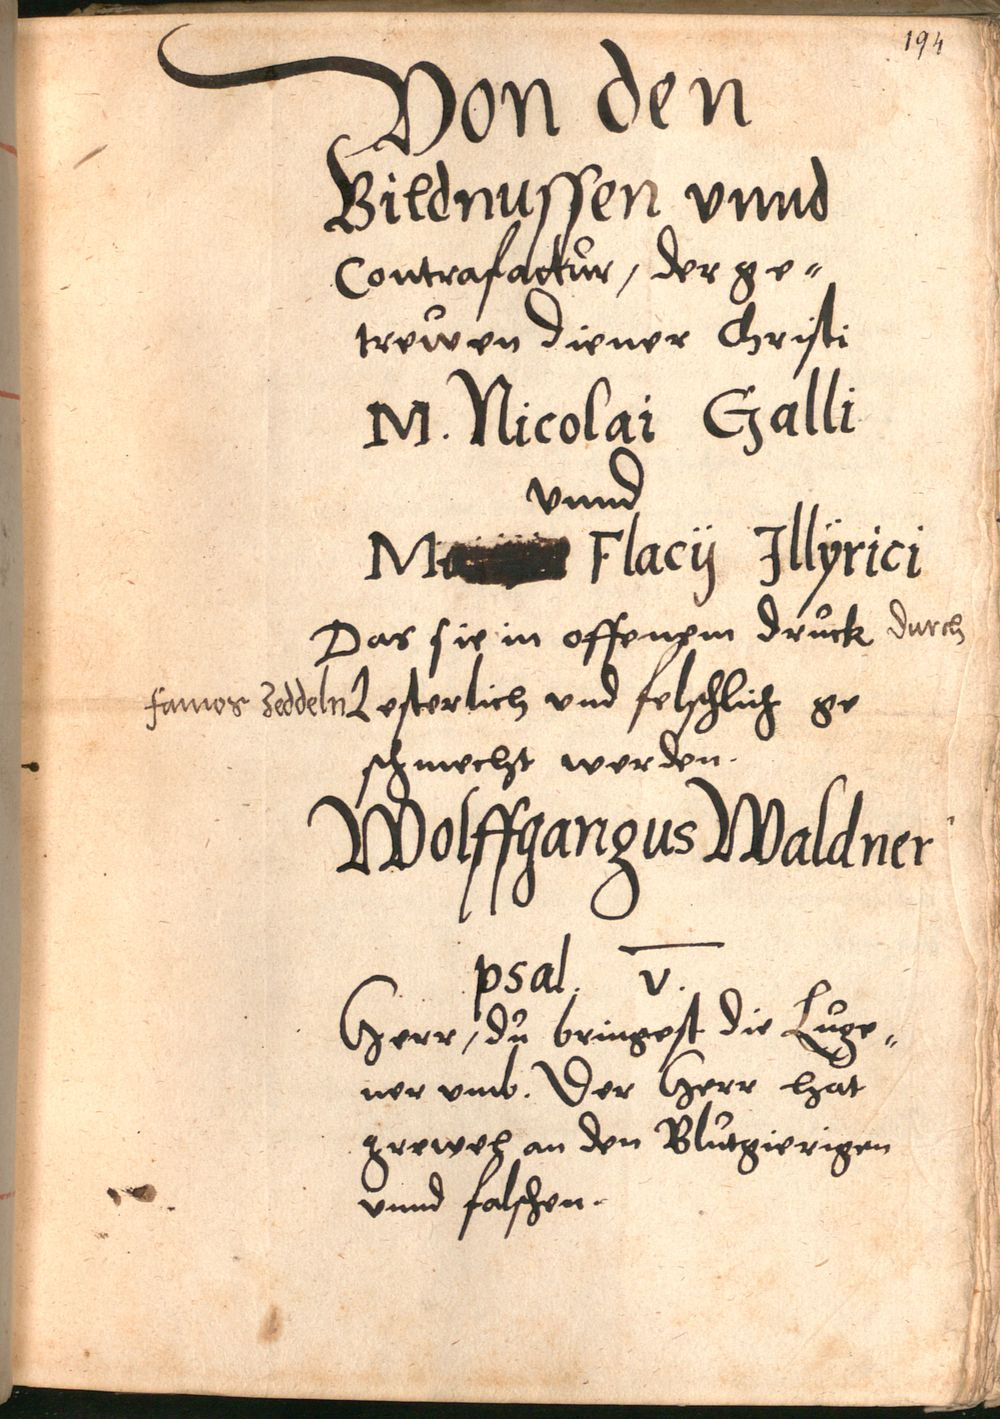 194
Von den
Bildnussen vnnd
Contrafactur, der ge=
trewen diener Christi
M. Nicolai Galli
vnnd
Flacij Jllÿrici
Das sie in offenem druck durch
famos Zeddeln Lesterlich vnd felschlich ge
schmecht werden.
Wolffgangus Waldner
psal. v.
Herr, du bringest die Luge=
ner vmb. Der Herr hat
grewel an den Blutgierigen
vnnd falschen.